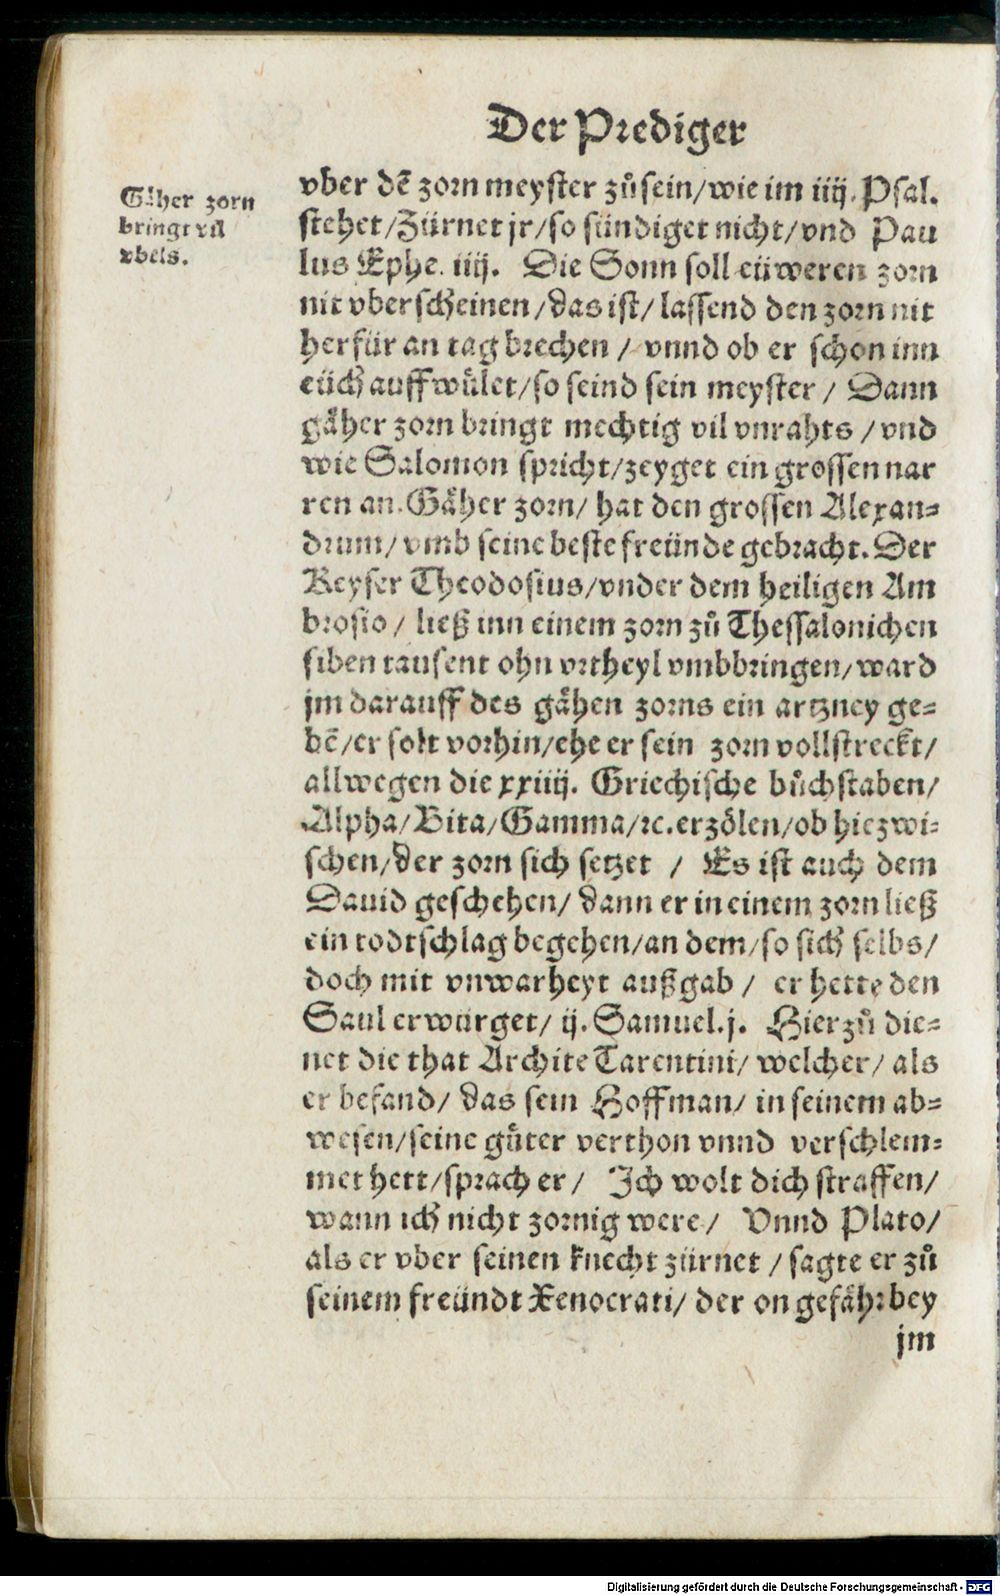 Der Prediger
Gäher zorn
bringt vil
vbels.
vber dē zorn meyster zůsein/wie im iiij. Psal.
stehet/Zürnet jr/so sündiget nicht/vnd Pau
lus Ephe. iiij. Die Sonn soll eüweren zorn
nit vberscheinen/das ist/lassend den zorn nit
herfür an tag brechen / vnnd ob er schon inn
eüch auffwület/so seind sein meyster / Dann
gäher zorn bringt mechtig vil vnrahts / vnd
wie Salomon spricht/zeyget ein grossen nar
ren an. Gäher zorn/ hat den grossen Alexan=
drum/ vmb seine beste freünde gebracht. Der
Keyser Theodosius/vnder dem heiligen Am
brosio / ließ inn einem zorn zů Thessalonichen
siben tausent ohn vrtheyl vmbbringen/ward
jm darauff des gähen zorns ein artzney ge=
bē/er solt vorhin/ehe er sein zorn vollstreckt/
allwegen die xxiiij. Griechische bůchstaben/
Alpha/Bita/Gamma/ꝛc.erzölen/ob hiezwi=
schen/der zorn sich setzet / Es ist auch dem
Dauid geschehen/ dann er in einem zorn ließ
ein todtschlag begehen/an dem/so sich selbs/
doch mit vnwarheyt außgab / er hette den
Saul erwürget/ ij. Samuel.j. Hierzů die=
net die that Archite Tarentini/ welcher/ als
er befand/ das sein Hoffman/ in seinem ab=
wesen/seine gůter verthon vnnd verschlem=
met hett/sprach er / Ich wolt dich straffen/
wann ich nicht zornig were / Vnnd Plato/
als er vber seinen knecht zürnet / sagte er zů
seinem freündt Xenocrati/ der ongefähr bey
jm
Digitalisierung gefördert durch die Deutsche Forschungsgemeinschaft - DFG